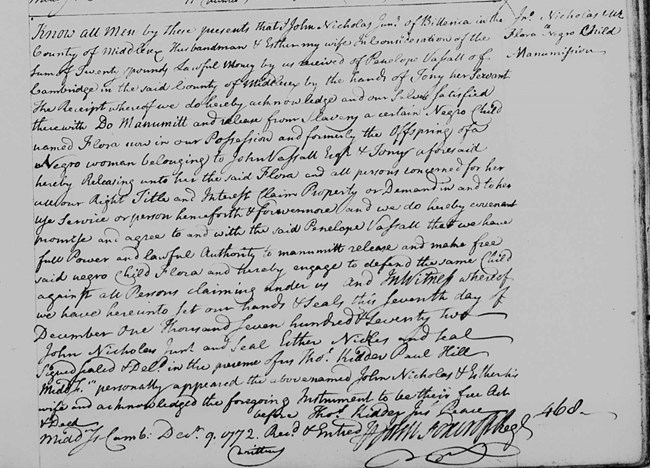 Know all Men by these presents that I John Nicholas Junr. of Billerica in the
County of Middlesex Husbandman & Esther my wife In Consideration of the
Sum of Twenty pounds Lawful Money by us received of Penelope Vassall of
Cambridge in the said County of Middlesex by the hands of Tony her Servant
The Receipt whereof we do hereby acknowledge and our Selves Satisfied
therewith Do Manumitt and release from Slavery a certain Negro Child
named Flora now in our Possession and formerly the Offspring of a
Negro woman belonging to John Vassall Esqr. & Tony aforesaid
hereby Releasing unto her the said Flora and all persons concerned for her
all our Right Title and Interest Claim Property or Demand in and to her
Use Service or person henceforth & forevermore and we do hereby covenant
promise and agree to and with the said Penelope Vassall that we have
full Power and lawful Authority to manumitt release and make free
said negro Child Flora and thereby engage to defend the same Child
against all Persons claiming under us and In Witness whereof
we have hereunto set our hands & Seals this Seventh day of
December One Thousand Seven hundred & Seventy two
John Nicholas Junr. and Seal Esther Nickles and Seal
Signed Sealed & Deld. in the presence of us Thos. Kidder Paul Hill
Middx. Ss. personally appeared the above named John Nicholas & Esther his
wife and acknowledged the foregoing Instrument to be their free Act
& Deed
before Thos. Kidder Jus Peace
Middx. Ss Camb: Decr. 9. 1772. Recd. & Entred
468
Jno. Nicholas
Flora Negro Child
Manumission